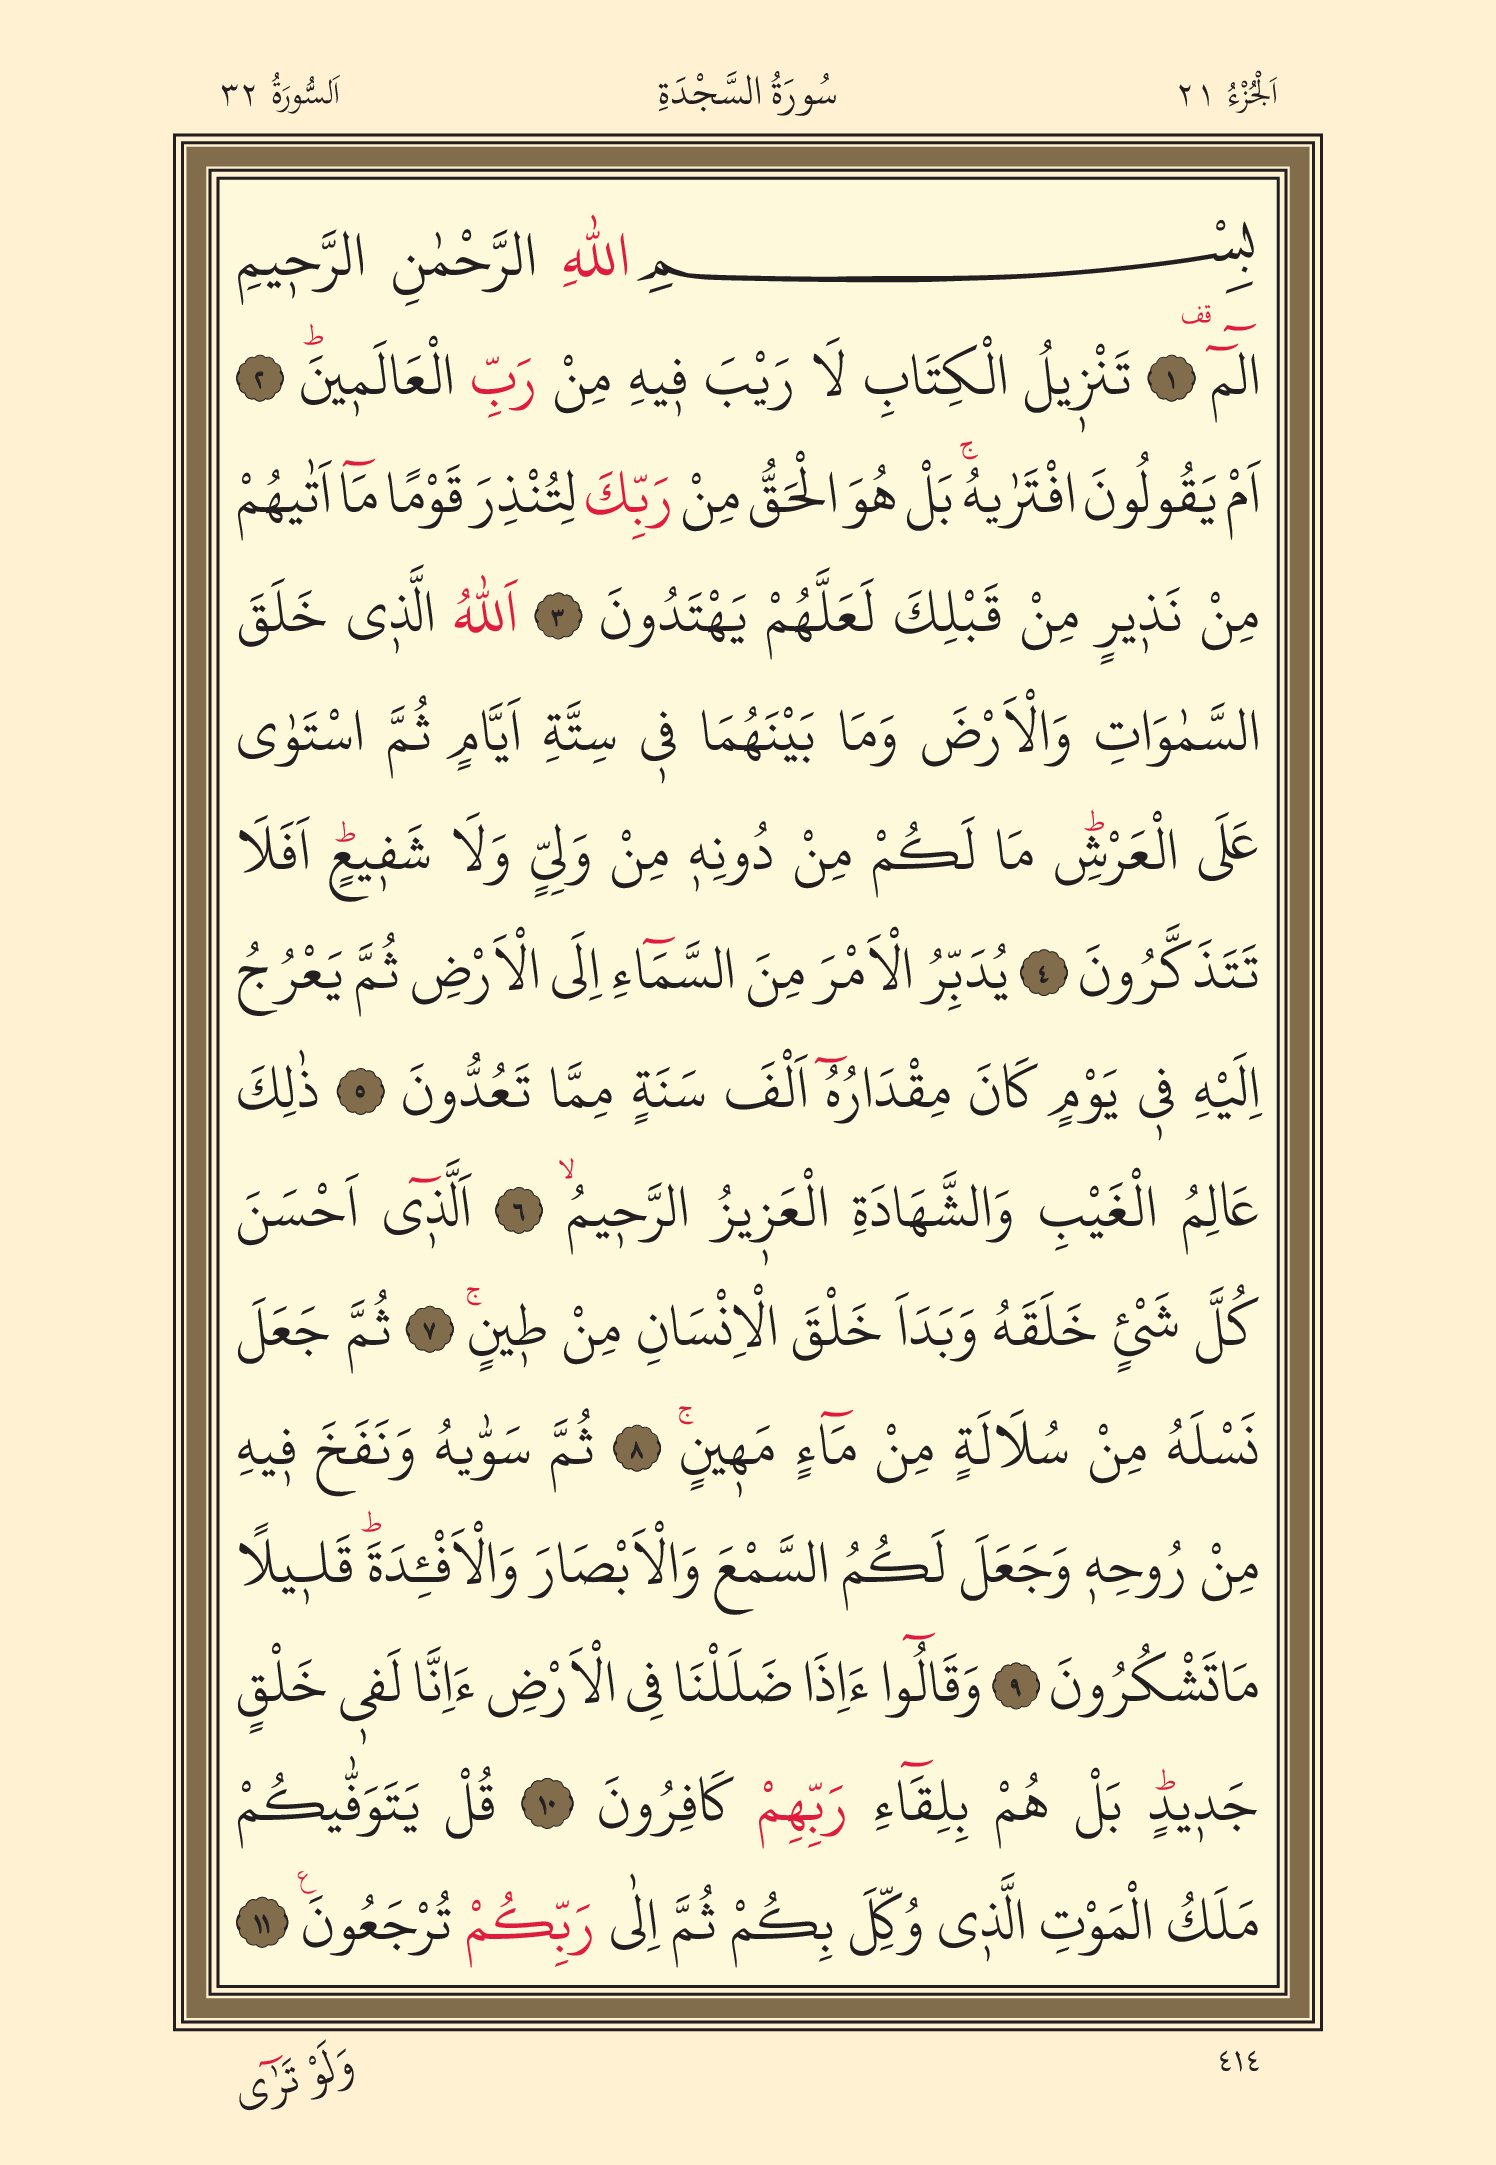 اَلْجُزْءُ ٢١ سُورَةُ السَّجْدَةِ اَلسُّورَةُ ٣٢
بِسْمِ اللّٰهِ الرَّحْمٰنِ الرَّحٖيمِ
الٓمٓ ۗ ﴿١﴾ تَنْزٖيلُ الْكِتَابِ لَا رَيْبَ فٖيهِ مِنْ رَبِّ الْعَالَمٖينَؕ ﴿٢﴾
اَمْ يَقُولُونَ افْتَرٰيهُۚ بَلْ هُوَ الْحَقُّ مِنْ رَبِّكَ لِتُنْذِرَ قَوْمًا مَٓا اَتٰيهُمْ
مِنْ نَذٖيرٍ مِنْ قَبْلِكَ لَعَلَّهُمْ يَهْتَدُونَ ﴿٣﴾ اَللّٰهُ الَّذٖى خَلَقَ
السَّمٰوَاتِ وَالْاَرْضَ وَمَا بَيْنَهُمَا فٖى سِتَّةِ اَيَّامٍ ثُمَّ اسْتَوٰى
عَلَى الْعَرْشِؕ مَا لَكُمْ مِنْ دُونِهٖ مِنْ وَلِىٍّ وَلَا شَفٖيعٍؕ اَفَلَا
تَتَذَكَّرُونَ ﴿٤﴾ يُدَبِّرُ الْاَمْرَ مِنَ السَّمَٓاءِ اِلَى الْاَرْضِ ثُمَّ يَعْرُجُ
اِلَيْهِ فٖى يَوْمٍ كَانَ مِقْدَارُهُٓ اَلْفَ سَنَةٍ مِمَّا تَعُدُّونَ ﴿٥﴾ ذٰلِكَ
عَالِمُ الْغَيْبِ وَالشَّهَادَةِ الْعَزٖيزُ الرَّحٖيمُۙ ﴿٦﴾ اَلَّذٖٓى اَحْسَنَ
كُلَّ شَىْءٍ خَلَقَهُ وَبَدَاَ خَلْقَ الْاِنْسَانِ مِنْ طٖينٍۚ ﴿٧﴾ ثُمَّ جَعَلَ
نَسْلَهُ مِنْ سُلَالَةٍ مِنْ مَٓاءٍ مَهٖينٍۚ ﴿٨﴾ ثُمَّ سَوّٰيهُ وَنَفَخَ فٖيهِ
مِنْ رُوحِهٖ وَجَعَلَ لَكُمُ السَّمْعَ وَالْاَبْصَارَ وَالْاَفْـِٔدَةَؕ قَلٖيلًا
مَاتَشْكُرُونَ ﴿٩﴾ وَقَالُٓوا ءَاِذَا ضَلَلْنَا فِى الْاَرْضِ ءَاِنَّا لَفٖى خَلْقٍ
جَدٖيدٍؕ بَلْ هُمْ بِلِقَٓاءِ رَبِّهِمْ كَافِرُونَ ﴿١٠﴾ قُلْ يَتَوَفّٰيكُمْ
مَلَكُ الْمَوْتِ الَّذٖى وُكِّلَ بِكُمْ ثُمَّ اِلٰى رَبِّكُمْ تُرْجَعُونَ ع ﴿١١﴾
٤١٤ وَلَوْ تَرٰٓى